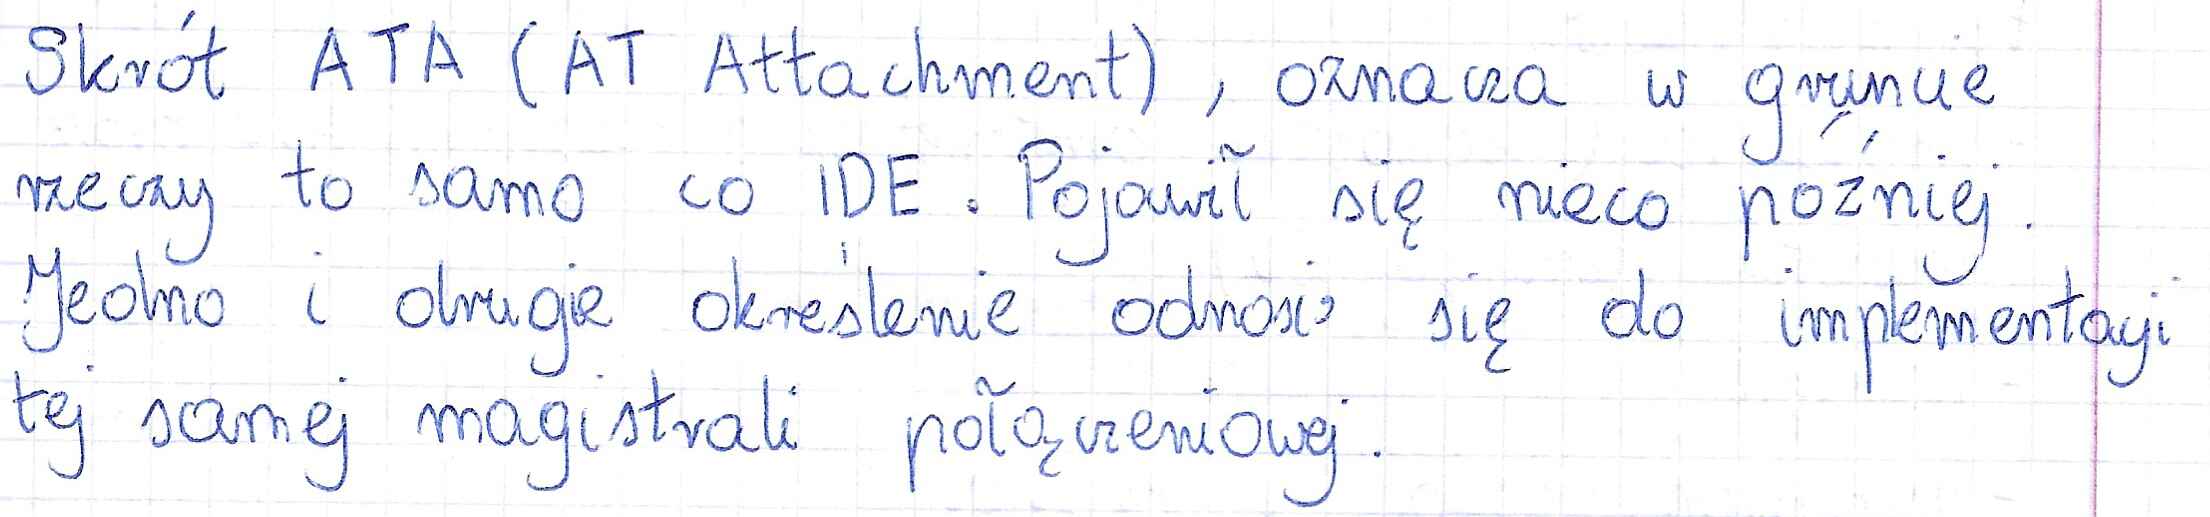 Skrót ATA (AT Attachment), oznacza w gruncie
rzeczy to samo co IDE. Pojawił się nieco później.
Jedno i drugie określenie odnosi się do implementacji
tej samej magistrali połączeniowej.